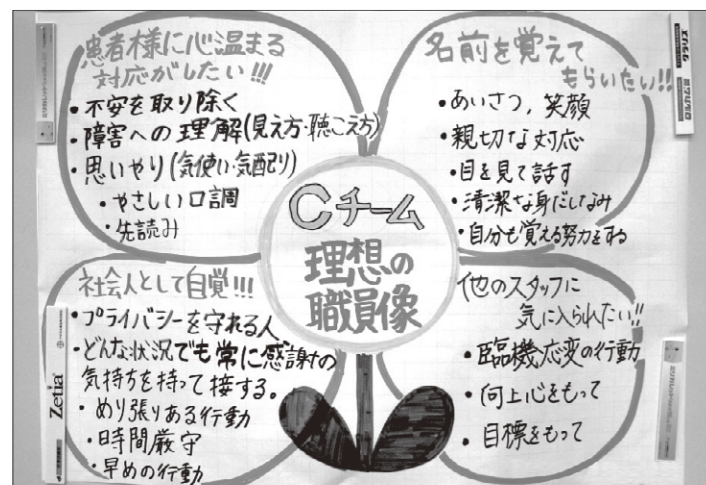 患者様に心温まる
対応がしたい!!!
・不安を取り除く
・障害への理解(見え方・聴こえ方)
・思いやり(気使い・気配り)
・やさしい口調
・先読み
名前を覚えて
もらいたい!!
・あいさつ,笑顔
・親切な対応
・目を見て話す
・清潔な身だしなみ
・自分も覚える努力をする
Cチーム
理想の
職員像
社会人として自覚!!!
・プライバシーを守れる人
・どんな状況でも常に感謝の
気持ちを持って接する。
・めり張りある行動
・時間厳守
・早めの行動
他のスタッフに
気に入られたい!!
・臨機応変の行動
・向上心をもって
・目標をもって
Zetia